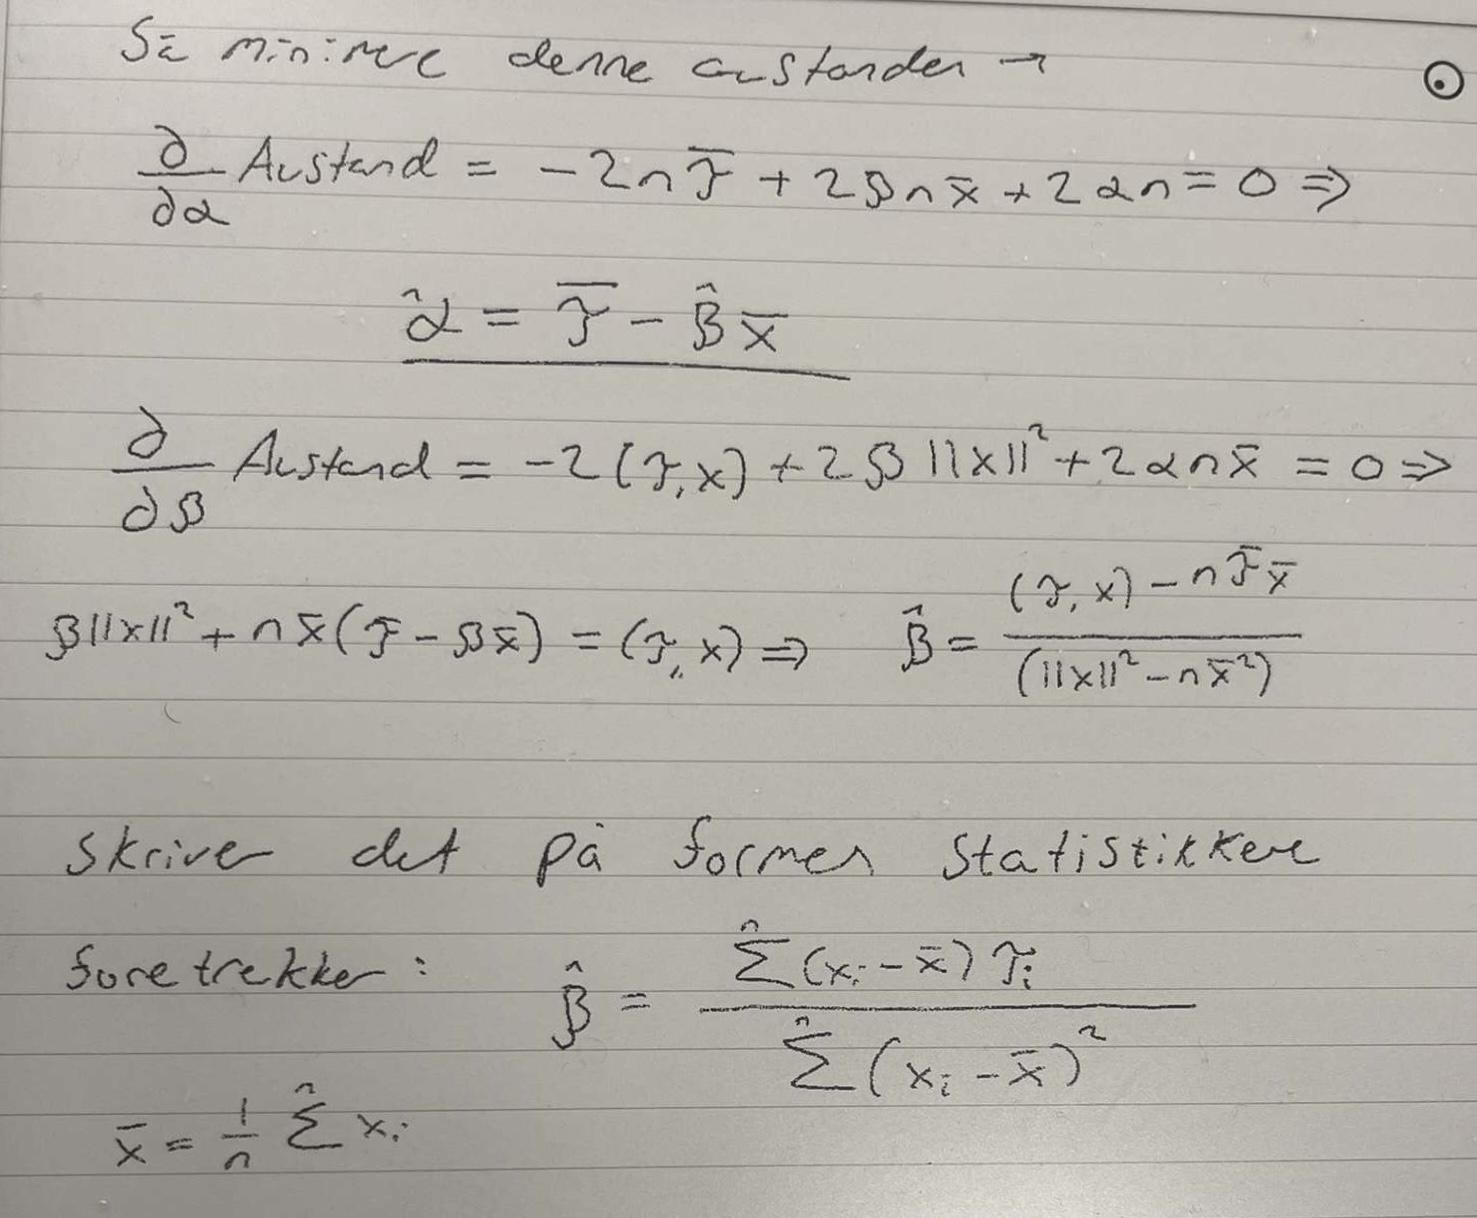 Så minimere denne avstanden →
∂/∂α Avstand = -2nȳ + 2βnx̄ + 2αn = 0 ⇒
α̂ = ȳ - β̂x̄
∂/∂β Avstand = -2(y, x) + 2β||x||² + 2αnx̄ = 0 ⇒
β||x||² + nx̄(ȳ - βx̄) = (y, x) ⇒ β̂ = ((y, x) - nȳx̄) / (||x||² - nx̄²)
Skriver det på formen statistikkere
foretrekker: β̂ = Σⁿ(xᵢ - x̄)yᵢ / Σⁿ(xᵢ - x̄)²
x̄ = 1/n Σⁿ xᵢ